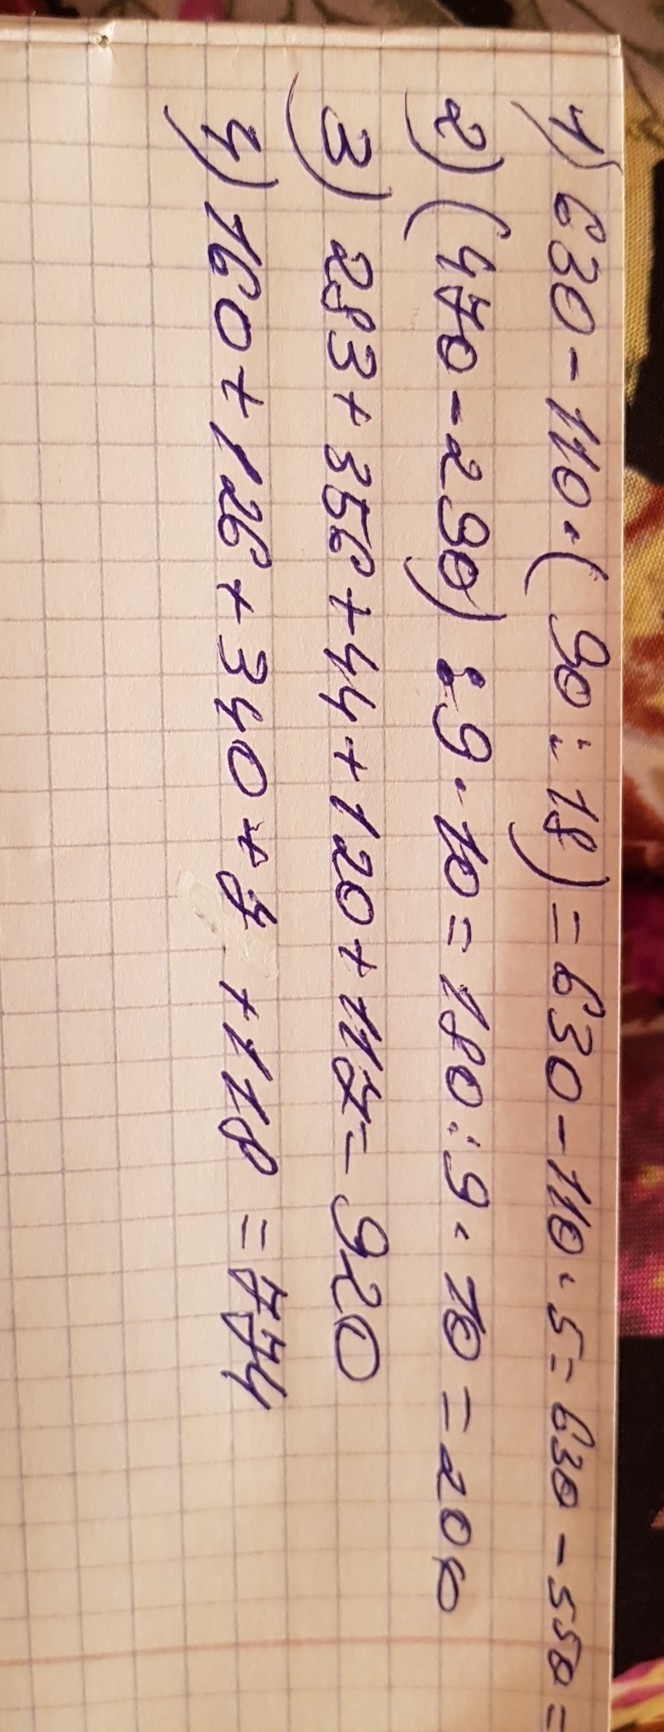 1) 630-110·(90:18)=630-110·5=630-550=
2) (470-290):9·10=180:9·10=200
3) 283+356+44+120+117=920
4) 160+126+340+ +118=774